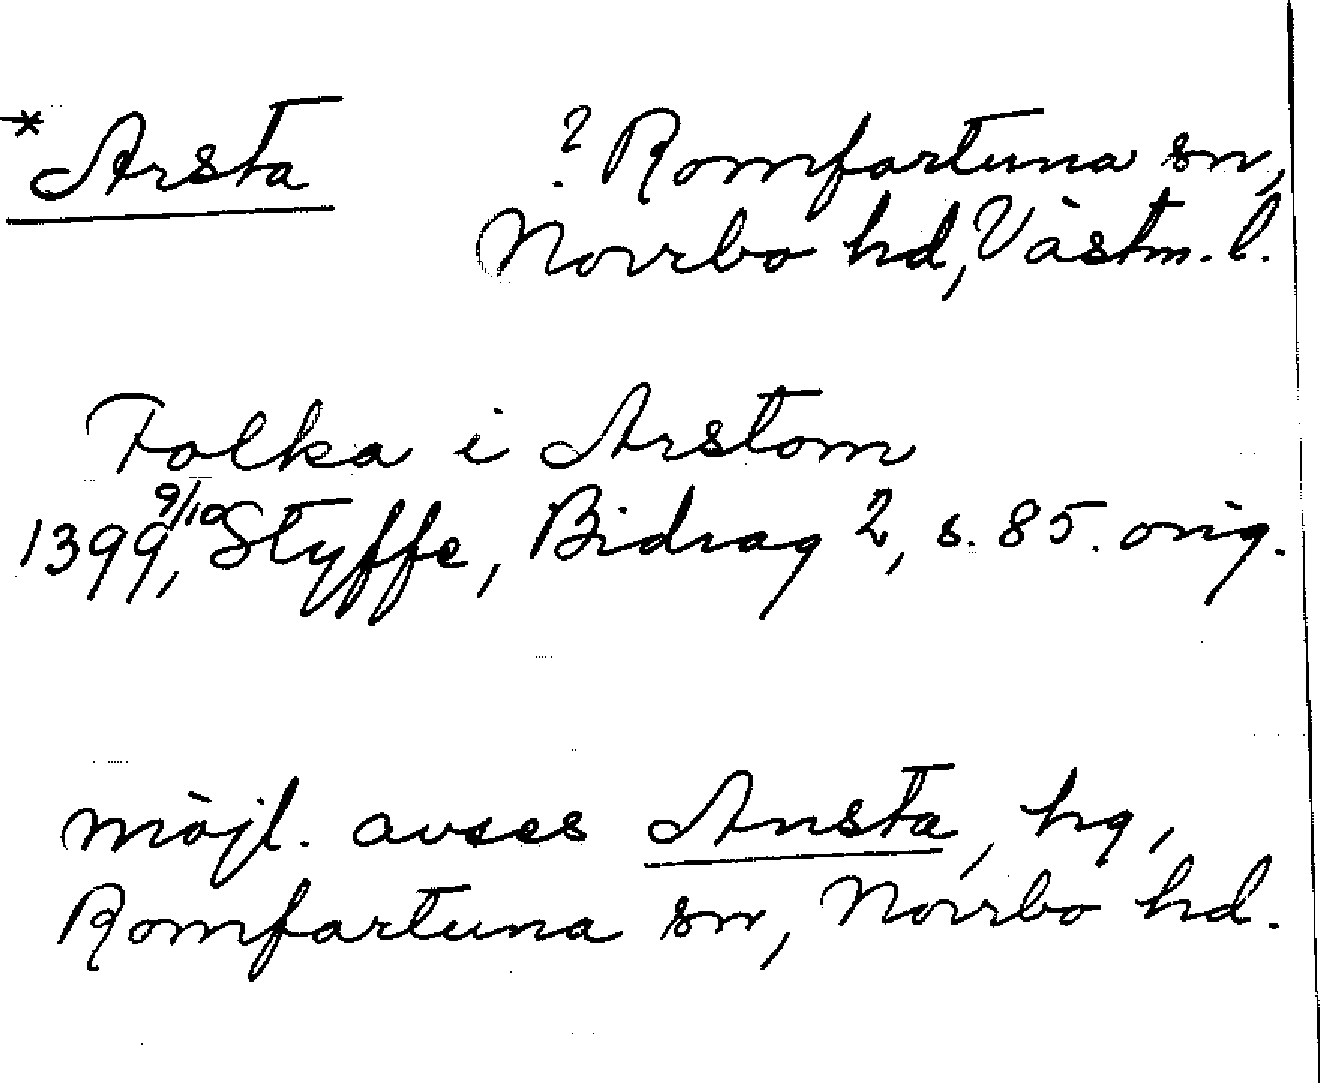 *Arsta ? Romfartuna sn,
Norrbo hd, Västm. l.
Folka i Arstom
1399 9/10, Styffe, Bidrag 2, s. 85. orig.
möjl. avses Ansta, hg,
Romfartuna sn, Norrbo hd.